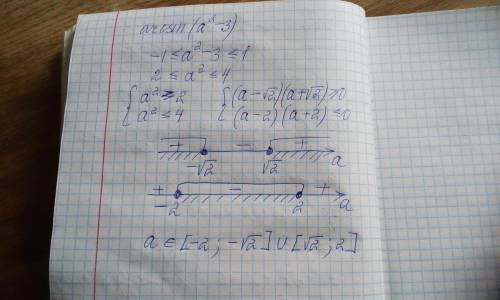 arcsin(a²-3)
-1 ≤ a²-3 ≤ 1
2 ≤ a² ≤ 4
{ a² ≥ 2 { (a-√2)(a+√2) ≥ 0
{ a² ≤ 4 { (a-2)(a+2) ≤ 0
+ - +
-√2 √2 a
+ - +
-2 2 a
a ∈ [-2; -√2] ∪ [√2; 2]